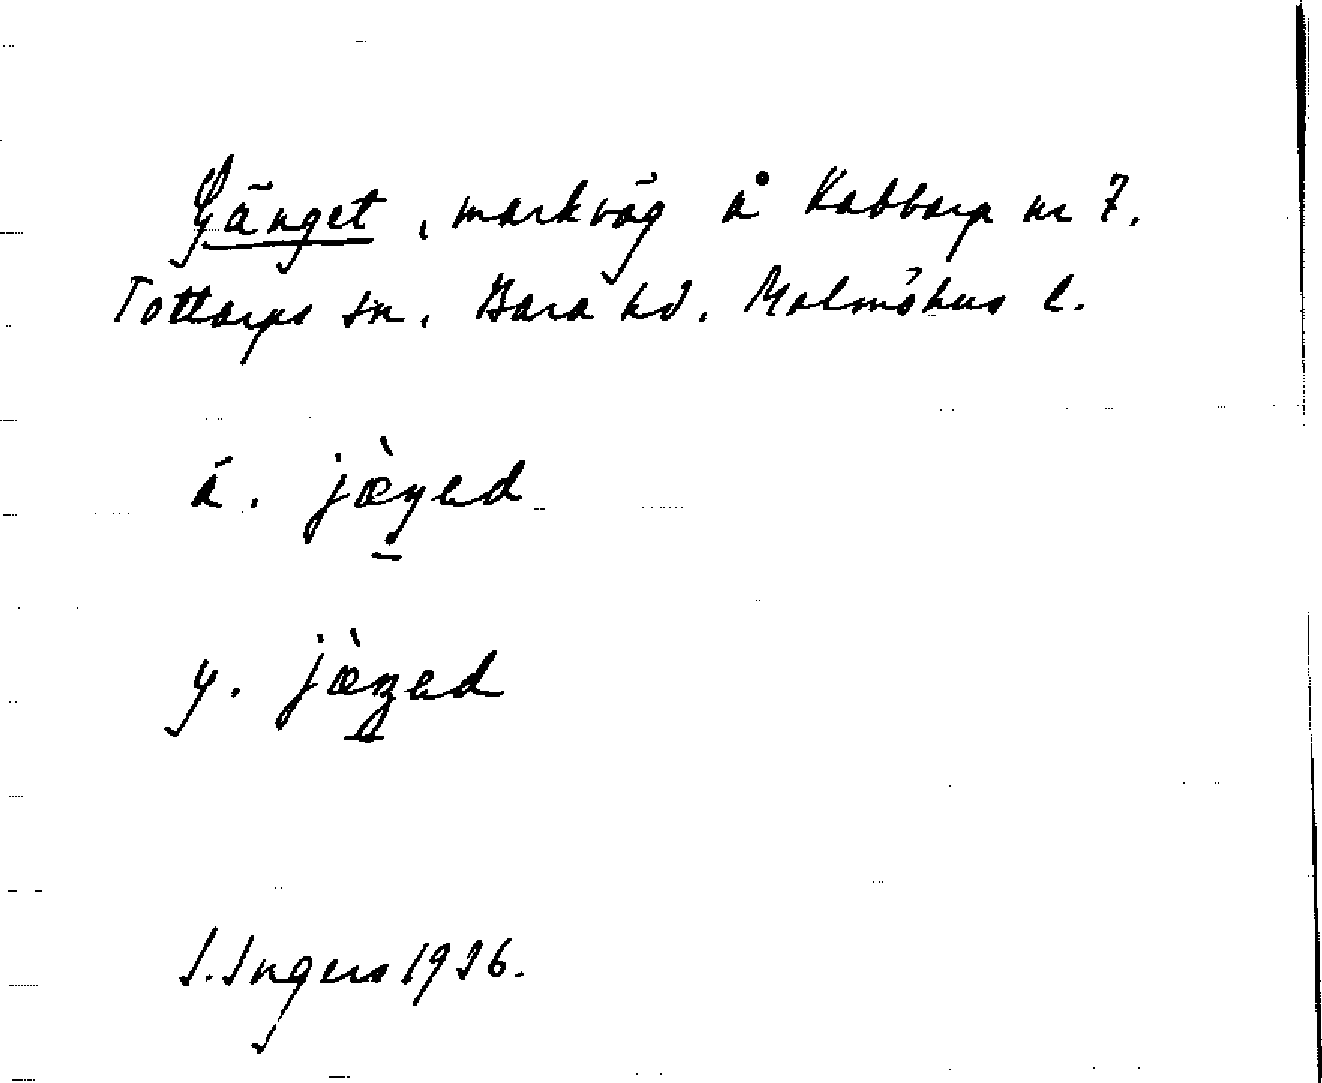 Gänget, markväg å Kabbarp nr 7.
Tottarps sn. Bara hd. Malmöhus l.
ä. jæ̀ŋed
y. jæ̀ŋed
I. Ingers 1926.